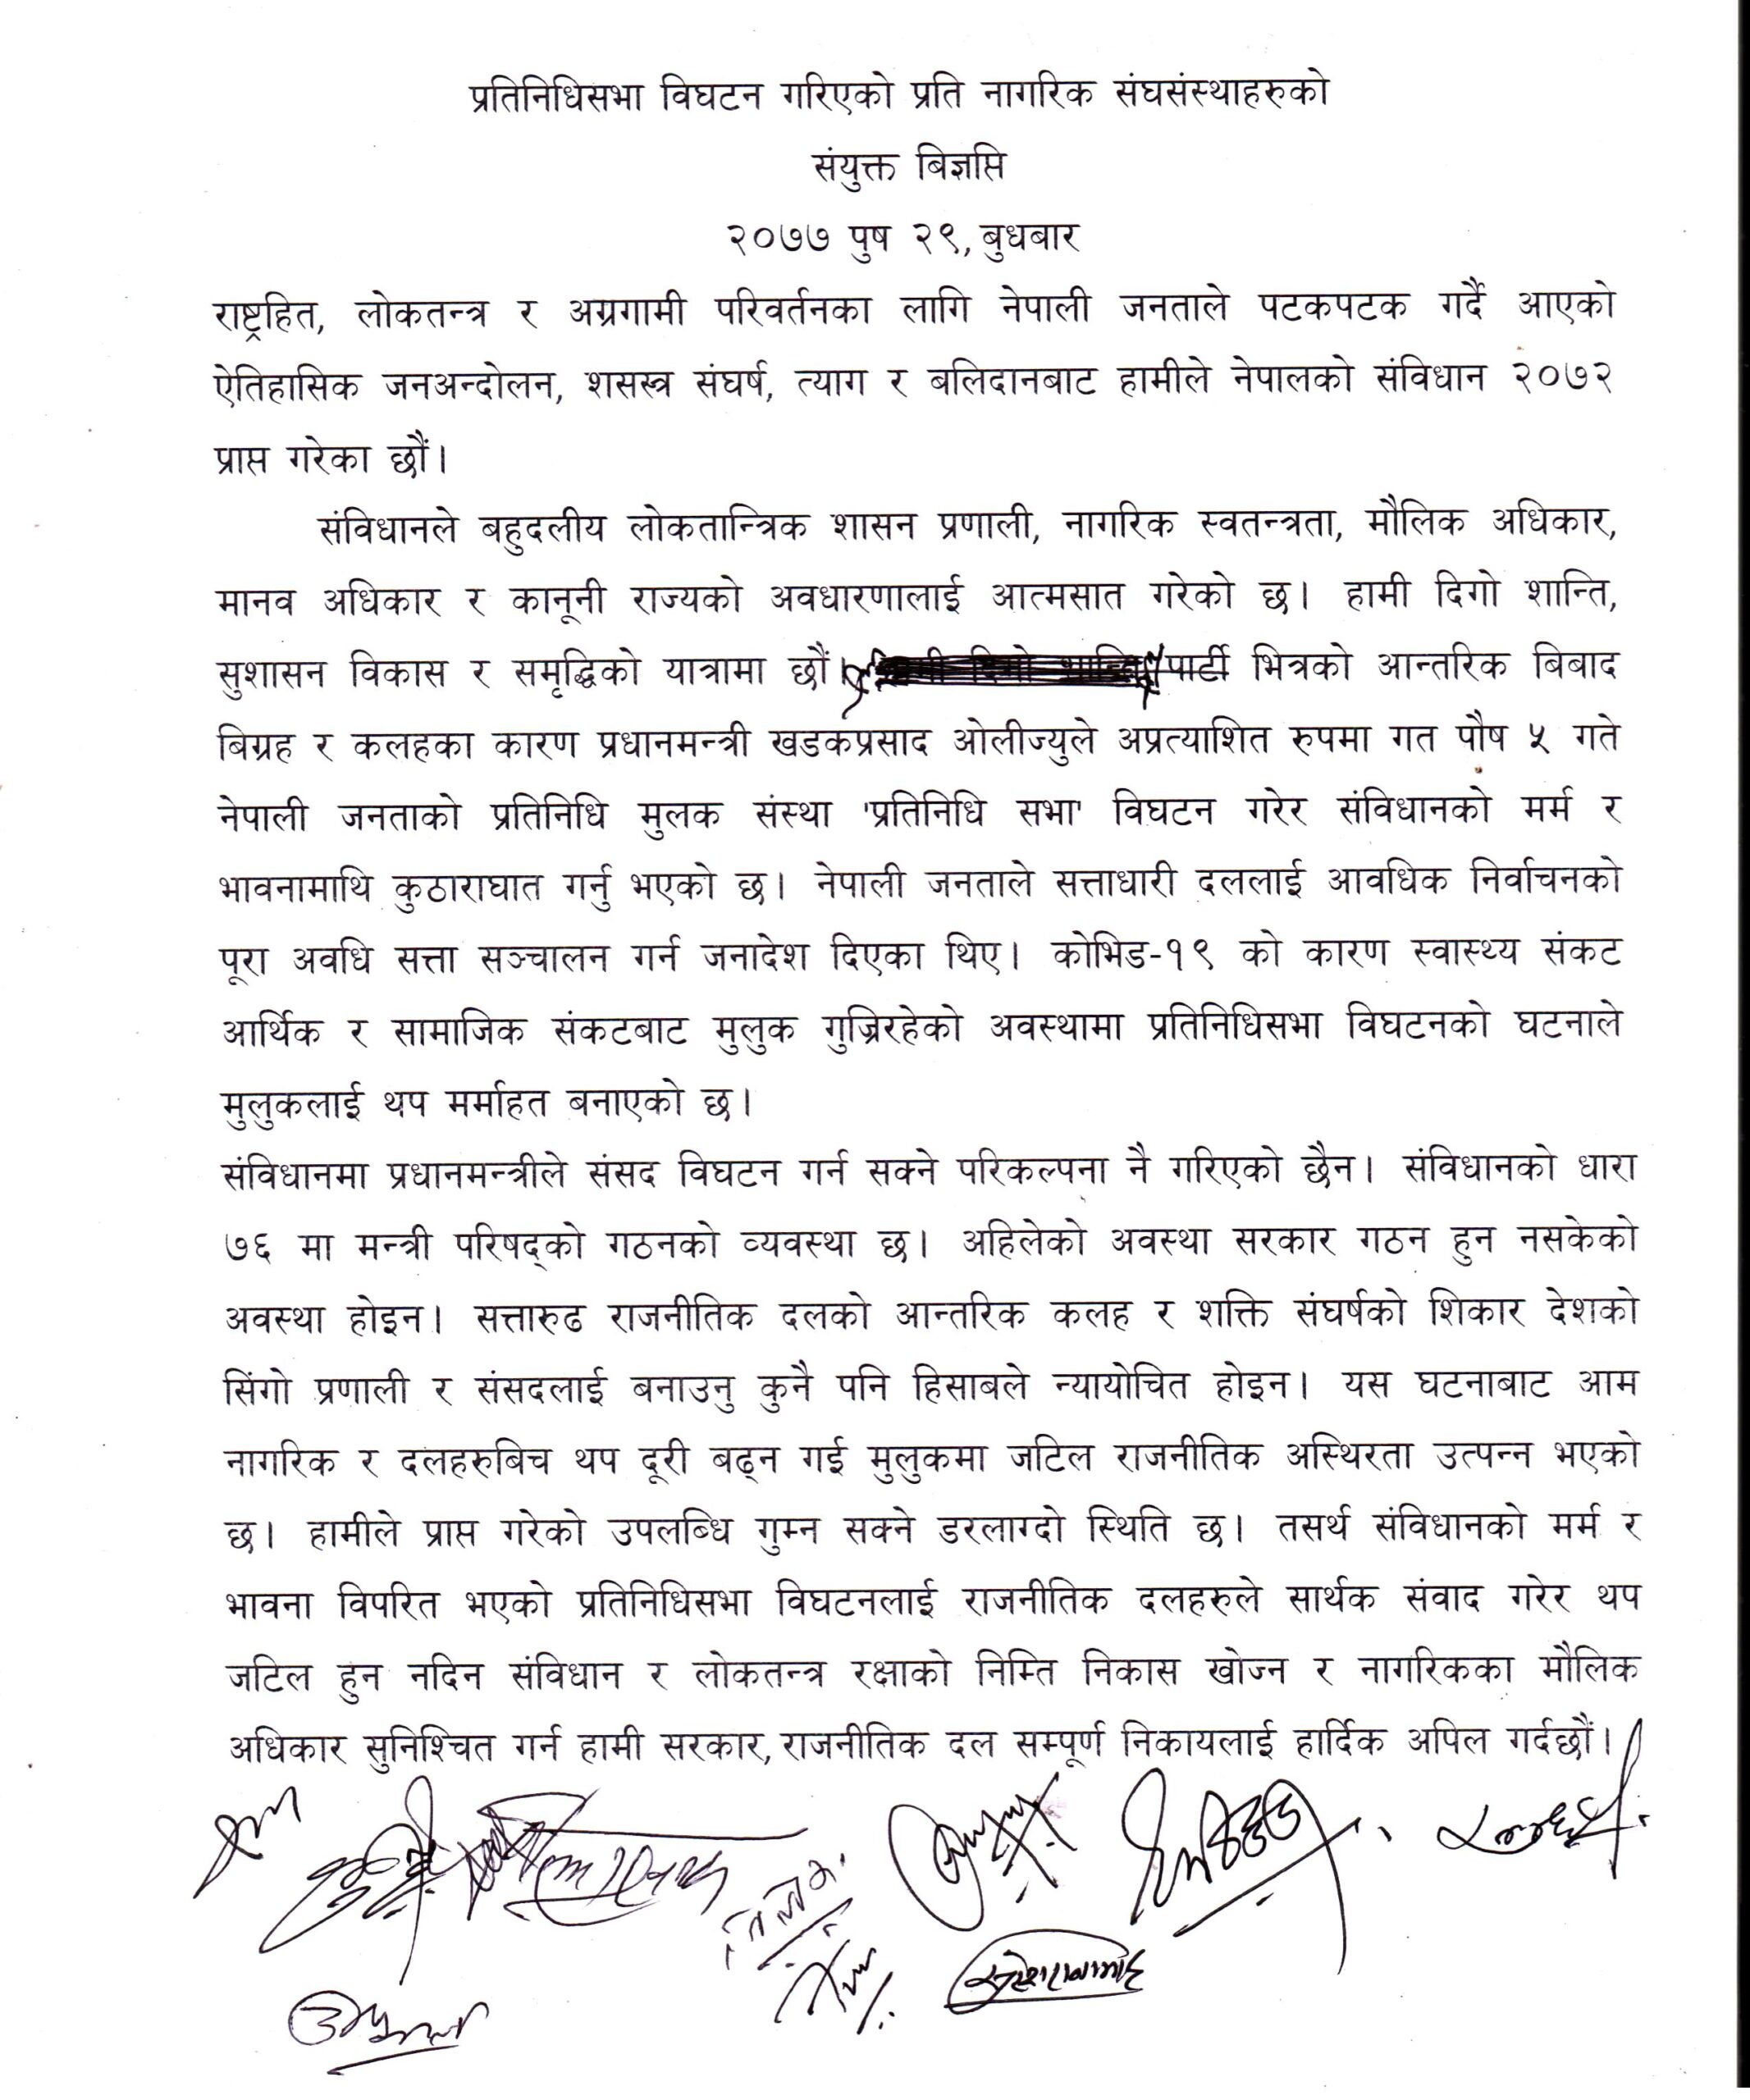 प्रतिनिधिसभा विघटन गरिएको प्रति नागरिक संघसंस्थाहरुको
संयुक्त बिज्ञप्ति
२०७७ पुष २९, बुधबार
राष्ट्रहित, लोकतन्त्र र अग्रगामी परिवर्तनका लागि नेपाली जनताले पटकपटक गर्दै आएको
ऐतिहासिक जनअन्दोलन, शसस्त्र संघर्ष, त्याग र बलिदानबाट हामीले नेपालको संविधान २०७२
प्राप्त गरेका छौं।
संविधानले बहुदलीय लोकतान्त्रिक शासन प्रणाली, नागरिक स्वतन्त्रता, मौलिक अधिकार,
मानव अधिकार र कानूनी राज्यको अवधारणालाई आत्मसात गरेको छ। हामी दिगो शान्ति,
सुशासन विकास र समृद्धिको यात्रामा छौं। पार्टी भित्रको आन्तरिक बिबाद
बिग्रह र कलहका कारण प्रधानमन्त्री खडकप्रसाद ओलीज्युले अप्रत्याशित रुपमा गत पौष ५ गते
नेपाली जनताको प्रतिनिधि मुलक संस्था 'प्रतिनिधि सभा' विघटन गरेर संविधानको मर्म र
भावनामाथि कुठाराघात गर्नु भएको छ। नेपाली जनताले सत्ताधारी दललाई आवधिक निर्वाचनको
पूरा अवधि सत्ता सञ्चालन गर्न जनादेश दिएका थिए। कोभिड-१९ को कारण स्वास्थ्य संकट
आर्थिक र सामाजिक संकटबाट मुलुक गुज्रिरहेको अवस्थामा प्रतिनिधिसभा विघटनको घटनाले
मुलुकलाई थप मर्माहत बनाएको छ।
संविधानमा प्रधानमन्त्रीले संसद विघटन गर्न सक्ने परिकल्पना नै गरिएको छैन। संविधानको धारा
७६ मा मन्त्री परिषद्को गठनको व्यवस्था छ। अहिलेको अवस्था सरकार गठन हुन नसकेको
अवस्था होइन। सत्तारुढ राजनीतिक दलको आन्तरिक कलह र शक्ति संघर्षको शिकार देशको
सिंगो प्रणाली र संसदलाई बनाउनु कुनै पनि हिसाबले न्यायोचित होइन। यस घटनाबाट आम
नागरिक र दलहरुबिच थप दूरी बढ्न गई मुलुकमा जटिल राजनीतिक अस्थिरता उत्पन्न भएको
छ। हामीले प्राप्त गरेको उपलब्धि गुम्न सक्ने डरलाग्दो स्थिति छ। तसर्थ संविधानको मर्म र
भावना विपरित भएको प्रतिनिधिसभा विघटनलाई राजनीतिक दलहरुले सार्थक संवाद गरेर थप
जटिल हुन नदिन संविधान र लोकतन्त्र रक्षाको निम्ति निकास खोज्न र नागरिकका मौलिक
अधिकार सुनिश्चित गर्न हामी सरकार, राजनीतिक दल सम्पूर्ण निकायलाई हार्दिक अपिल गर्दछौं।